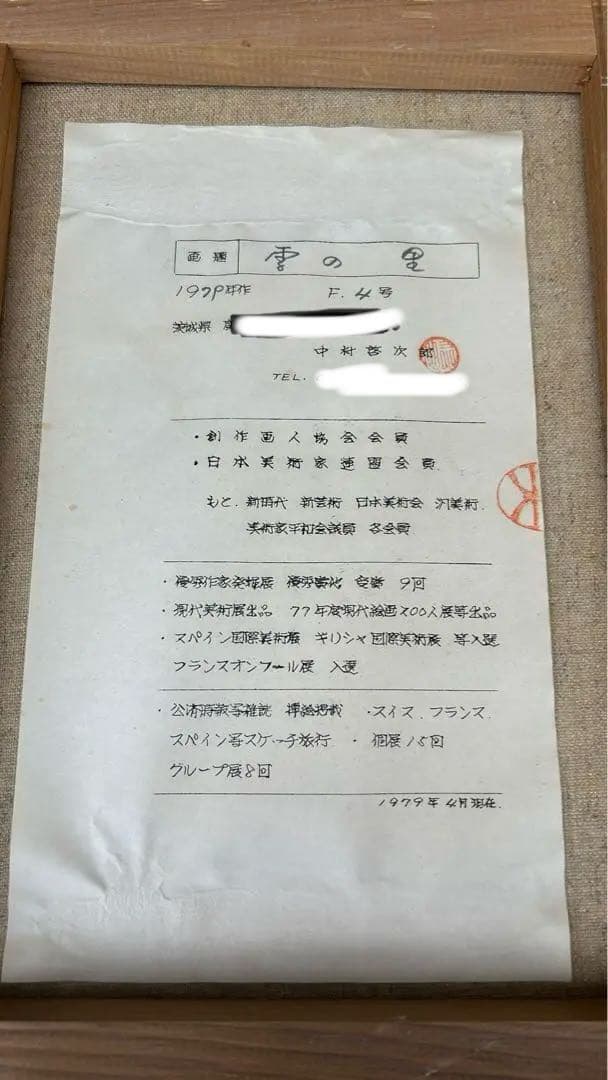 画題 雲の里
1979年作 F.4号
茨城県
中村啓次郎
TEL.
・創作画人協会会員
・日本美術家連盟会員
もと、新時代 新芸術 日本美術会 汎美術.
美術家平和会議員 各会員
・優秀作家発掘展 優秀賞 受賞 9回
・現代美術展出品 77年度現代絵画200人展等出品
・スペイン国際美術展 ギリシャ国際美術展 等入選
フランスオンフール展 入選
・公済時報写雑誌 挿絵掲載 ・スイス、フランス、
スペイン写スケッチ旅行 ・ 個展15回
グループ展8回
1979年4月現在.